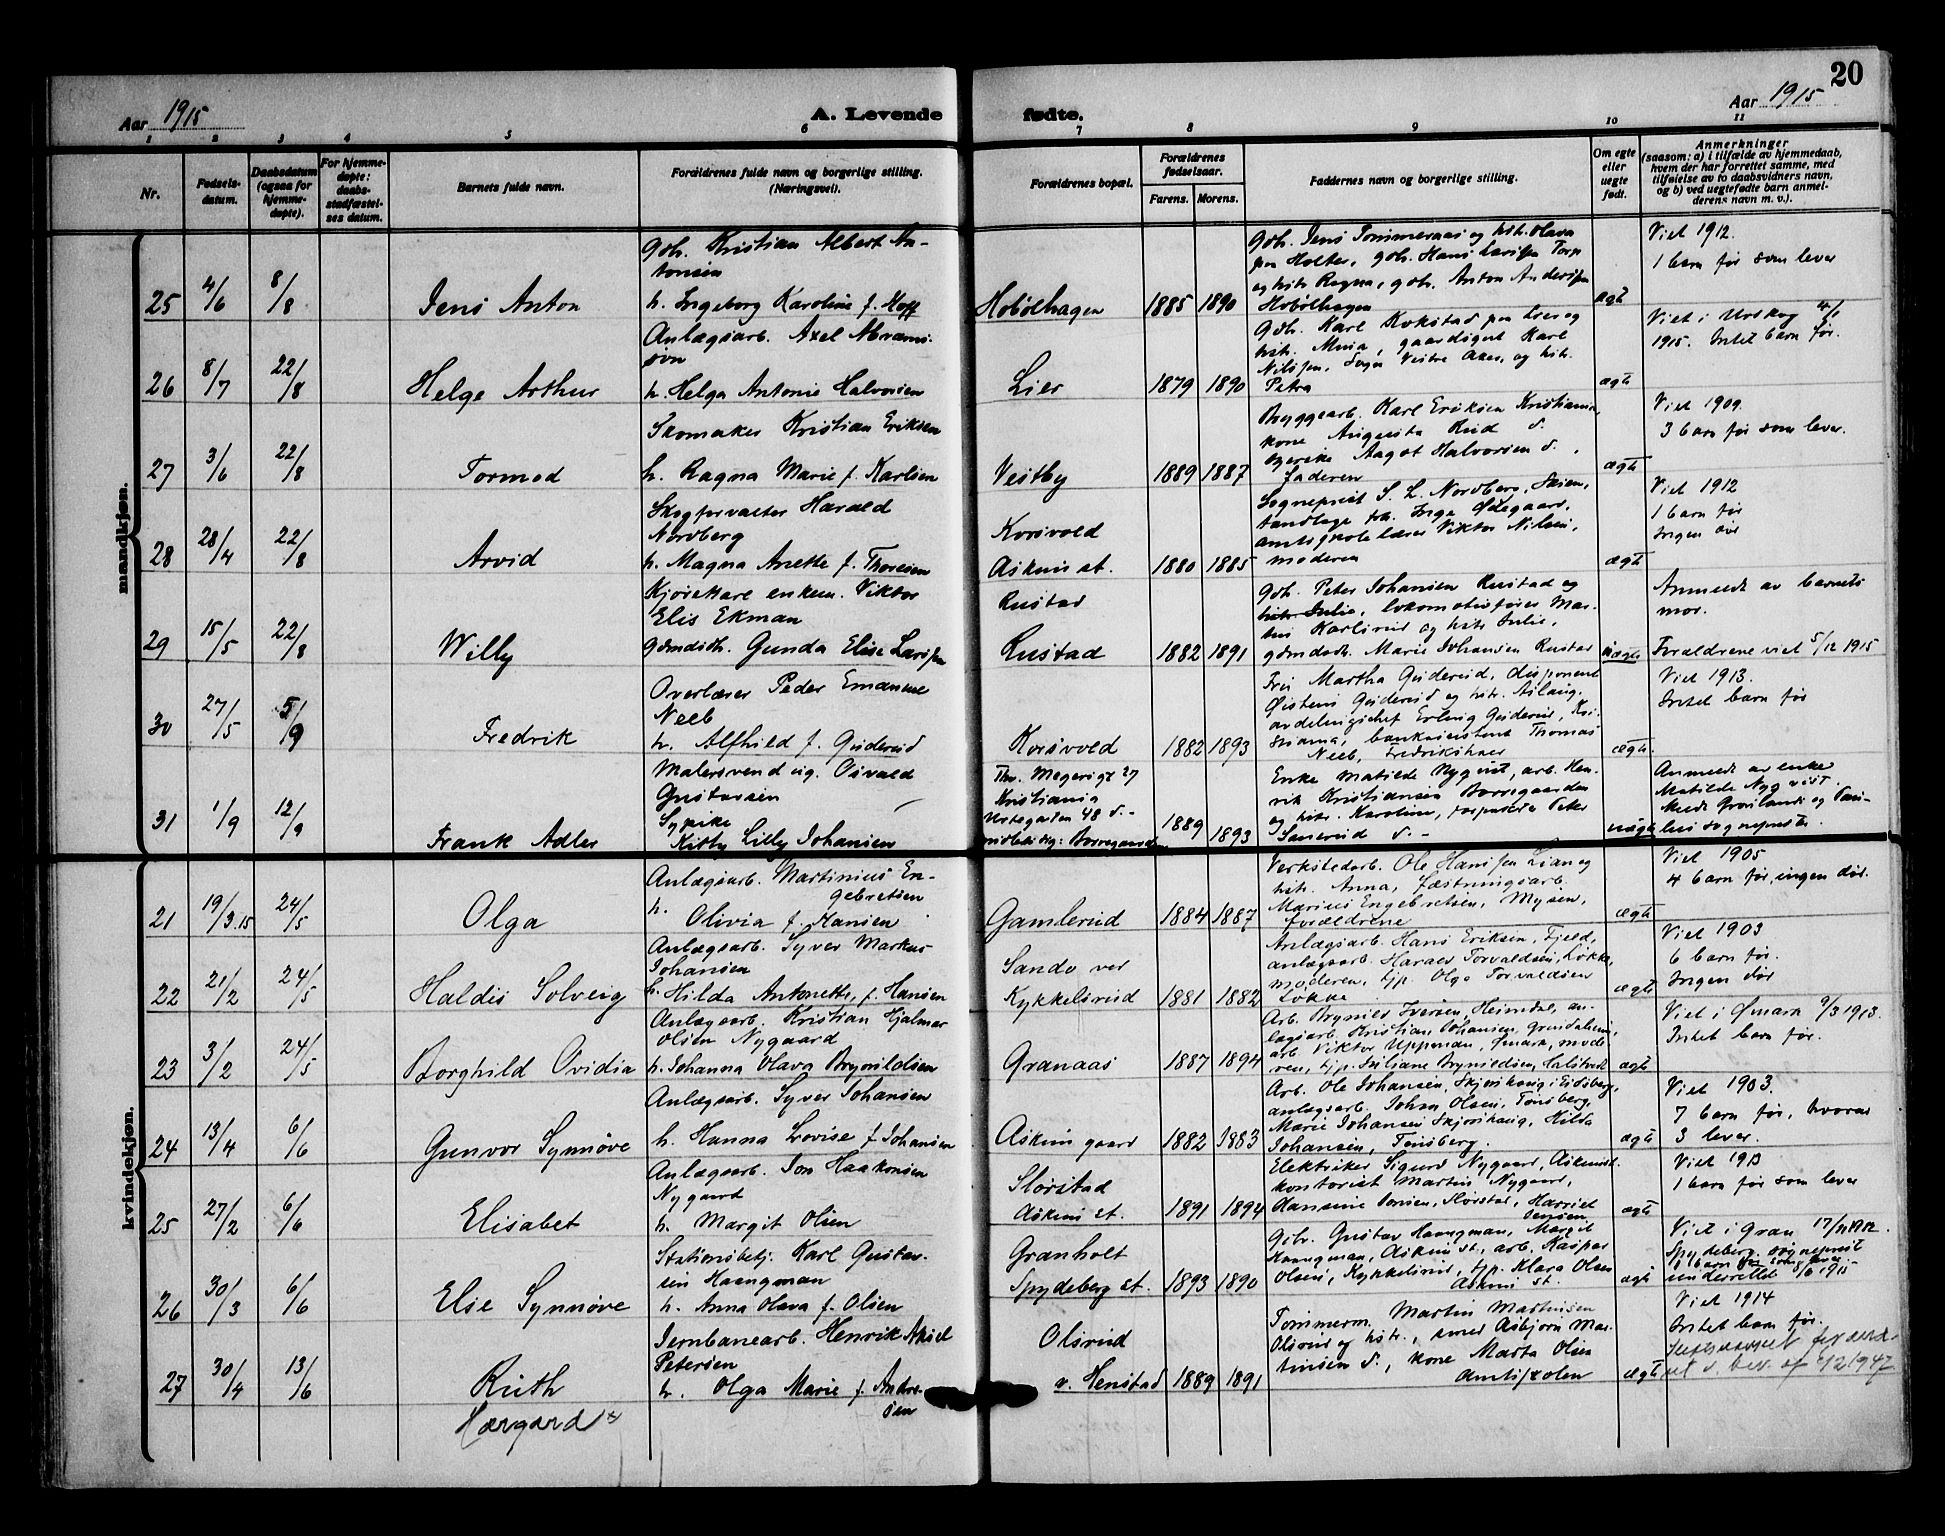 20
Aar 1915
A. Levende
fødte.
Aar 1915
1 2 3 4 5 6 7 8 9 10 11
Nr.
Fødsels-
datum.
Daabsdatum
(ogsaa for
hjemme-
døpte).
For hjemme-
døpte:
daabs-
stadfæstel-
ses datum.
Barnets fulde navn.
Forældrenes fulde navn og borgerlige stilling.
(Næringsvei).
Forældrenes bopæl.
Forældrenes
fødselsaar.
Farens. Morens.
Faddernes navn og borgerlige stilling.
Om egte
eller
uegte
født.
Anmerkninger
(saasom: a) i tilfælde av hjemmedaab,
hvem der har forrettet samme, med
tilføielse av to daabsvidners navn,
og b) ved uegtefødte barn anmel-
derens navn m. v.).
mandkjøn.
25 4/6 8/8 Jens Anton
Gdb. Kristian Albert An-
tonsen
h. Ingeborg Karoline f. Hoff
Hobølhagen 1885 1890
Gdb. Jens Tommeraas og hstr. Olava
Holter, gdb. Hans Larssen Torp
og hstr. Ragna, gdb. Anton Anderssen
Hobølhagen
ægte
Viet 1912.
1 barn før som lever
26 8/7 22/8 Helge Arthur
Anlægsarb. Axel Abrams-
søn
h. Helga Antonie Halvorsen
Lier 1879 1890
Gdb. Karl Kokstad Lier og
hstr. Mina, gaardsgut Karl
Nilssen, Vestre Aker, og hstr.
Petra
ægte
Viet i Urskog 4/1
1915. Intet barn før.
27 3/6 22/8 Tormod
Skomaker Kristian Eriksen
h. Ragna Marie f. Karlsen
Vestby 1889 1887
Byggearb. Karl Eriksen Kristiania,
kone Augusta Ruud d.
Aagot Halvorsen d.,
faderen
ægte
Viet 1909.
3 barn før som lever.
28 28/4 22/8 Arvid
Skogforvalter Harald
Nordberg
h. Magna Anette f. Thoresen
Korsvold
Askim st. 1880 1885
Sogneprest S. L. Nordberg, Skien,
tandlæge frk. Inga Ødegaard,
amtsskolelærer Viktor Nilsen,
moderen
ægte
Viet 1912
1 barn før
Ingen død
29 15/5 22/8 Willy
Kjørekare enkem. Viktor
Elis Ekman
Gdmdtr. Gunda Elise Larssen
Rustad
Rustad 1882 1891
Gdb. Peter Johansen Rustad og
hstr. Julie, lokomotivfører Mar-
tin Karlsrud og hstr. Julie,
gdmdtr. Marie Johansen Rustad
uægte
Anmeldt av barnets
mor.
Forældrene viet 5/12 1915
30 27/5 5/9 Fredrik
Overlærer Peder Emanuel
Neeb
h. Alfhild f. Guderud
Korsvold 1882 1893
Frk. Martha Guderud, disponent
Øistein Guderud og hstr. Aslaug,
avdelingschef Erling Guderud, Kri-
stiania, bankassistent Thomas
Neeb, Fredrikshald
ægte.
Viet 1913.
Intet barn før
31 1/9 12/9 Frank Adler
Malersvend ug. Osvald
Gustavsen
Sypike
Kitty Lilly Johansen
Thv. Meyersgt 27
Kristiania
Urtegaden 48 d. -
midlertidig: Borregaarden
1889 1893
Enke Matilde Nyqvist, arb. Hen-
rik Kristiansen Borregaarden
og hstr. Karoline, Peter
Sanerud d. -
uægte
Anmeldt av enke
Matilde Nyqvist.
Meldt Grønlands og Pau-
lus sogneprester.
kvindekjøn.
21 19/3.15 24/5 Olga
Anlægsarb. Martinius En-
gebretsen
h. Olivia f. Hansen
Gamlerud 1884 1887
Verkstedarb. Ole Hanssen Lian og
hstr. Anna, fæstningsarb.
Marius Engebretsen, Mysen,
forældrene
ægte
Viet 1905
4 barn før, ingen død.
22 21/2 24/5 Haldis Solveig
Anlægsarb. Syver Markus
Johansen
h. Hilda Antonette, f. Hansen
Sando ved
Kykkelsrud 1881 1882
Anlægsarb. Hans Eriksen, Fjeld,
anlægsarb. Harald Torvaldsen, Løkke,
moderen, tjp. Olga Torvaldsen
Løkke
ægte
Viet 1903
6 barn før.
Ingen død
23 3/2 24/5 Borghild Ovidia
Anlægsarb. Kristian Hjalmar
Olsen Nygaard
h. Johanna Olava Brynildsen
Granaas 1887 1894
Arb. Brynild Iversen, Heimdal, an-
lægsarb. Kristian Johansen,
arb. Viktor Uppman, Ømark, mode-
ren, tjp. Juliane Brynildsen,
ægte
Viet i Ømark 9/3 1913.
Intet barn før.
24 13/4 6/6 Gunvor Synnøve
Anlægsarb. Syver Johansen
h. Hanna Lovise f. Johansen
Askim gaard 1882 1883
Arb. Ole Johansen, Skjørshaug i Eidsberg,
anlægsarb. Johan Olsen, Tønsberg,
Marie Johansen Skjørshaug, Hilda
Johansen, Tønsberg.
ægte
Viet 1903.
7 barn før, hvorav
3 lever.
25 27/2 6/6 Elisabet
Anlægsarb. Jon Haakonsen
Nygaard
h. Margit Olsen
Slorstad
Askim st. 1891 1894
Elektriker Sigurd Nygaard, Askimst.
kontorist Martin Nygaard,
Hansine Jonsen, Slorstad, Harriet
Jensen
ægte
Viet 1913
1 barn før som lever
26 30/3 6/6 Else Synnøve
Stationsbetj. Karl Gustav-
sen Haangman
h. Anna Olava f. Olsen
Granholt
Spydeberg st. 1893 1890
Gdb. Gustav Haangman, Margit
Haangman, Askim st., arb. Kaspar
Olsen, Kykkelsrud, tjp. Klara Olsen
Askim st.
ægte
Viet i Gran 17/11 1912.
Spydeberg sogneprest
1 barn før som lever
underrettet 8/6 1915
27 30/4 13/6 Ruth
Hærgard *
Jernbanearb. Henrik Aksel
Petersen
h. Olga Marie f. Andre-
sen
Olsrud
v. Henstad 1889 1891
Tømmerm. Martin Martinsen
Olsrud og hstr., smed Asbjørn Mar-
tinsen d., kone Marta Olsen
Amtsskolen
ægte
Viet 1914
Intet barn før.